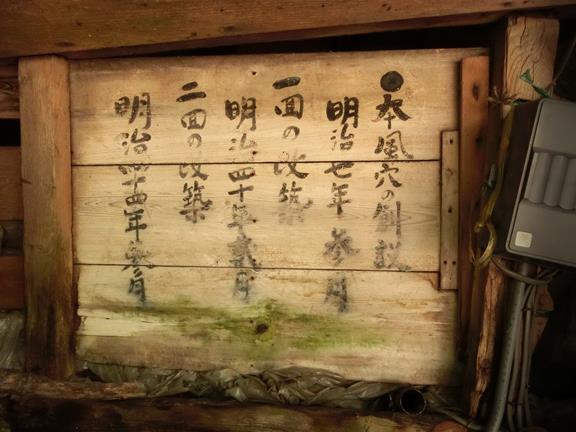 ●本風穴の創設
明治七年参月
一面の改築
明治四十年貮月
二面の改築
明治四十四年参月